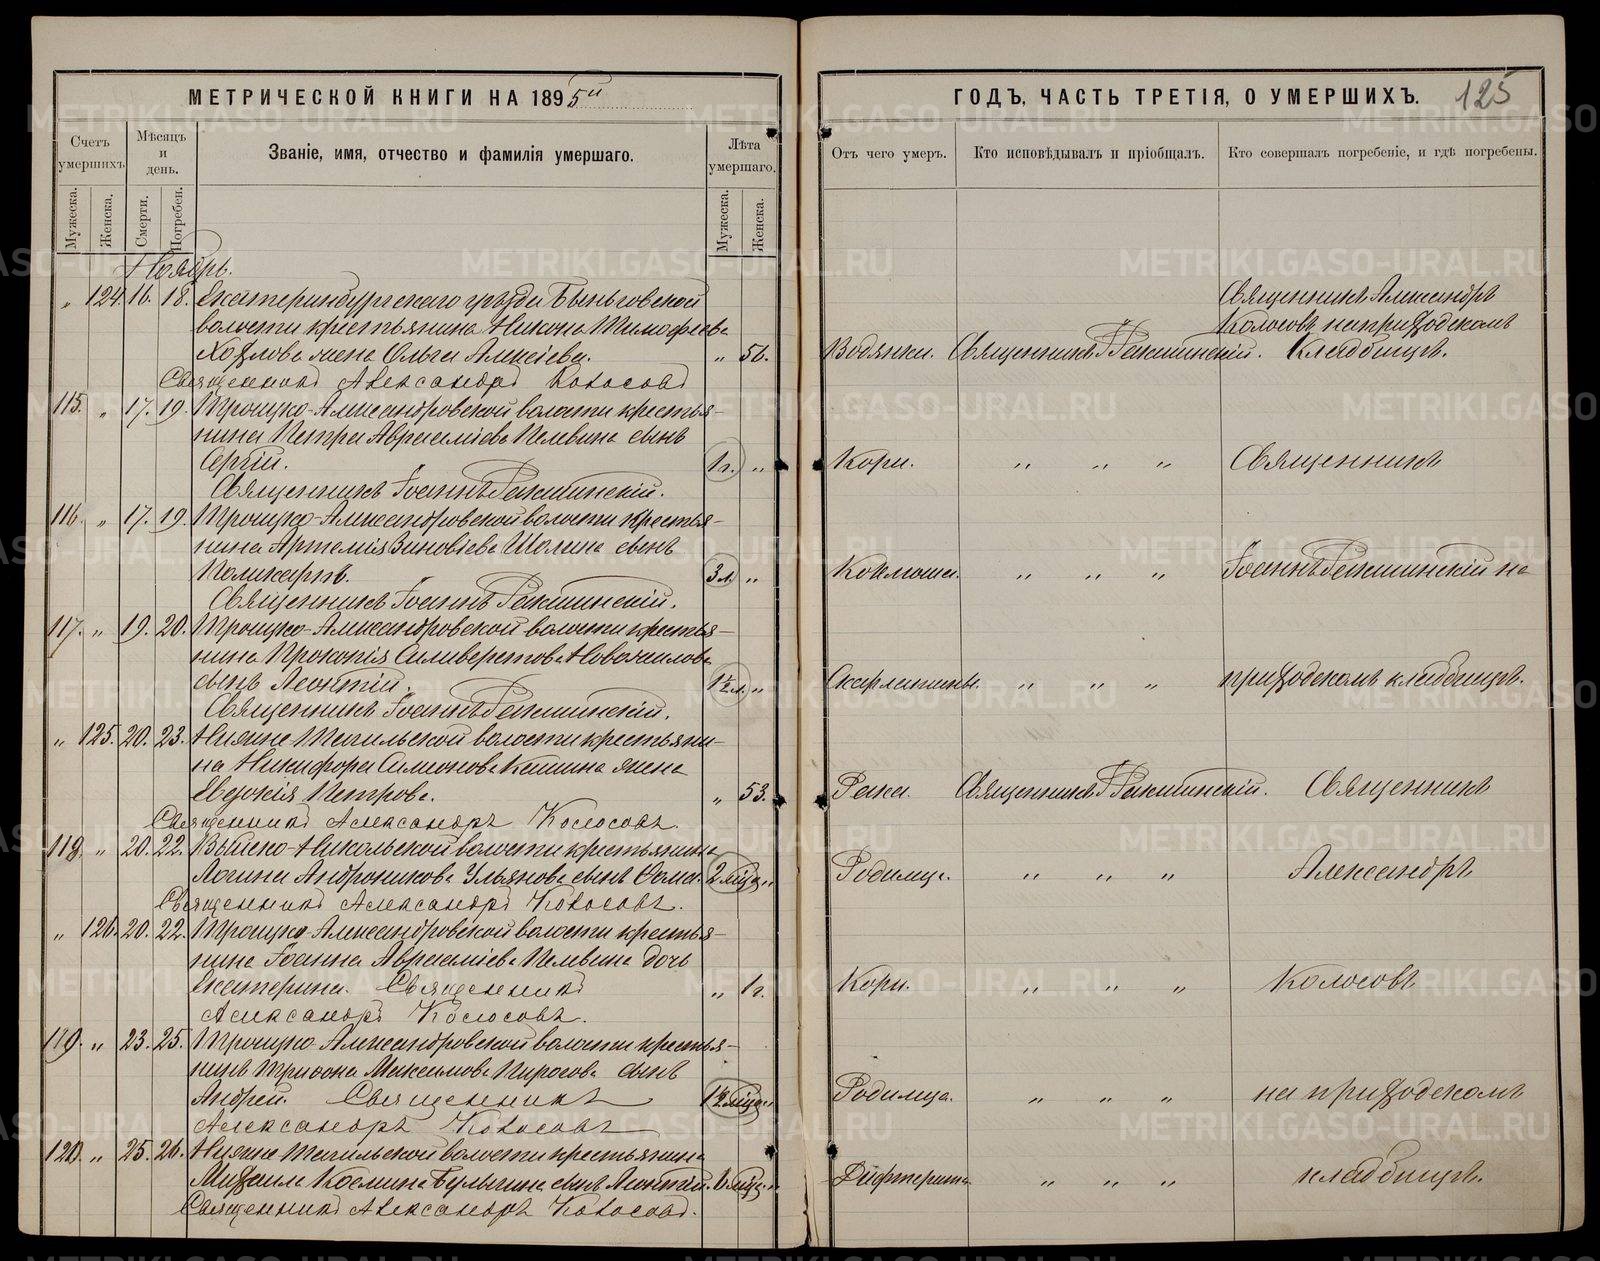 МЕТРИЧЕСКОЙ КНИГИ НА 1895й
Счетъ умершихъ.
Мѣсяцъ и день.
Званіе, имя, отчество и фамилія умершаго.
Лѣта умершаго.
Мужеска. Женска. Смерти. Погребен. Мужеска. Женска.
Ноябрь.
„ 124. 16. 18. Екатеринбургскаго уѣзда Быньговской
волости крестьянина Никона Тимофеева
Козлова жена Ольга Алексіева. „ 56.
Священникъ Александръ Колосовъ
115. „ 17. 19. Троицко-Александровской волости крестья-
нина Петра Авраамiева Пелевина сынъ
Сергій. 1 г. „
Священникъ Іоаннъ Ракшинскій.
116. „ 17. 19. Троицко-Александровской волости крестья-
нина Артемія Зиновіева Шолина сынъ
Поликарпъ. 3 л. „
Священникъ Іоаннъ Ракшинскій.
117. „ 19. 20. Троицко-Александровской волости крестья-
нина Прокопія Силиверстова Новожилова
сынъ Леонтій. 1½ л. „
Священникъ Іоаннъ Ракшинскій.
„ 125. 20. 23. Нижне Тагильской волости крестьяни-
на Никифора Симонова Кашина жена
Евдокія Петрова. „ 53.
Священникъ Александръ Колосовъ.
118. „ 20. 22. Выйско-Никольской волости крестьянина
Логина Андроникова Ульянова сынъ Ѳома. 2 мѣца „
Священникъ Александръ Колосовъ.
„ 126. 20. 22. Троицко-Александровской волости крестья-
нина Іоанна Авраамiева Пелевина дочь
Екатерина. Священникъ „ 1 г.
Александръ Колосовъ.
119. „ 23. 25. Троицко-Александровской волости крестья-
нинъ Трифона Максимова Пирогова сынъ
Андрей. Священникъ 1½ мѣца „
Александръ Колосовъ
120. „ 25. 26. Нижне Тагильской волости крестьянина
Михаила Космина Булыгина сынъ Леонтій. 6 мѣц. „
Священникъ Александръ Колосовъ.
ГОДЪ, ЧАСТЬ ТРЕТІЯ, О УМЕРШИХЪ. 125
Отъ чего умеръ. Кто исповѣдывалъ и пріобщалъ. Кто совершалъ погребеніе, и гдѣ погребены.
Священникъ Александръ
Колосовъ на приходскомъ
Водянки. Священникъ І Ракшинскій. Кладбищѣ.
Кори. „ „ „ Священникъ
Коклюша. „ „ „ Іоаннъ Ракшинскій на
Скарлатины. „ „ „ приходскомъ кладбищѣ.
Рака. Священникъ І Ракшинскій. Священникъ
Родимца. „ „ „ Александръ
Кори. „ „ „ Колосовъ
Родимца. „ „ „ на приходскомъ
Дифтерита „ „ „ кладбищѣ.
METRIKI.GASO-URAL.RU